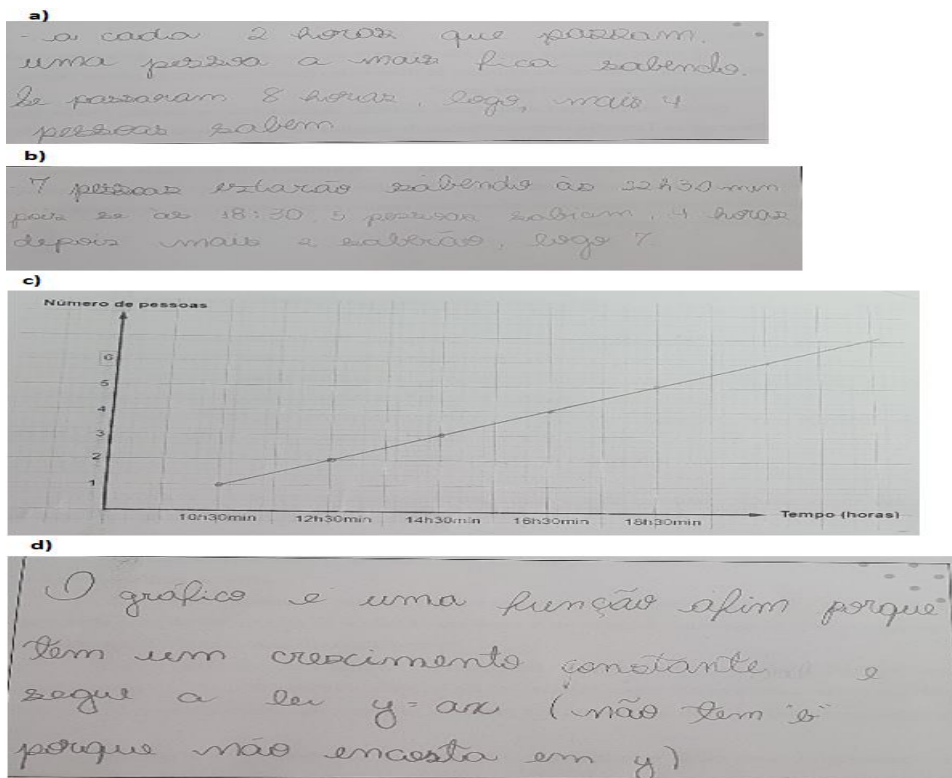 a)
- a cada 2 horas que passam.
uma pessoa a mais fica sabendo.
Se passaram 8 horas, logo, mais 4
pessoas sabem
b)
7 pessoas estarão sabendo às 22h30min
pois se às 18:30 5 pessoas sabiam, 4 horas
depois mais 2 saberão, logo 7.
c)
Número de pessoas
6
5
4
3
2
1
10h30min 12h30min 14h30min 16h30min 18h30min Tempo (horas)
d)
O gráfico é uma função afim porque
tem um crescimento constante e
segue a lei y=ax (não tem "b"
porque não encosta em y)